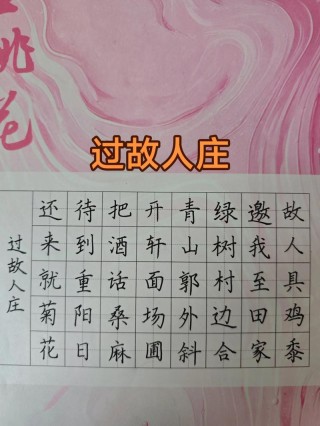 桃花
过故人庄
过故人庄
故人具鸡黍
邀我至田家
绿树村边合
青山郭外斜
开轩面场圃
把酒话桑麻
待到重阳日
还来就菊花